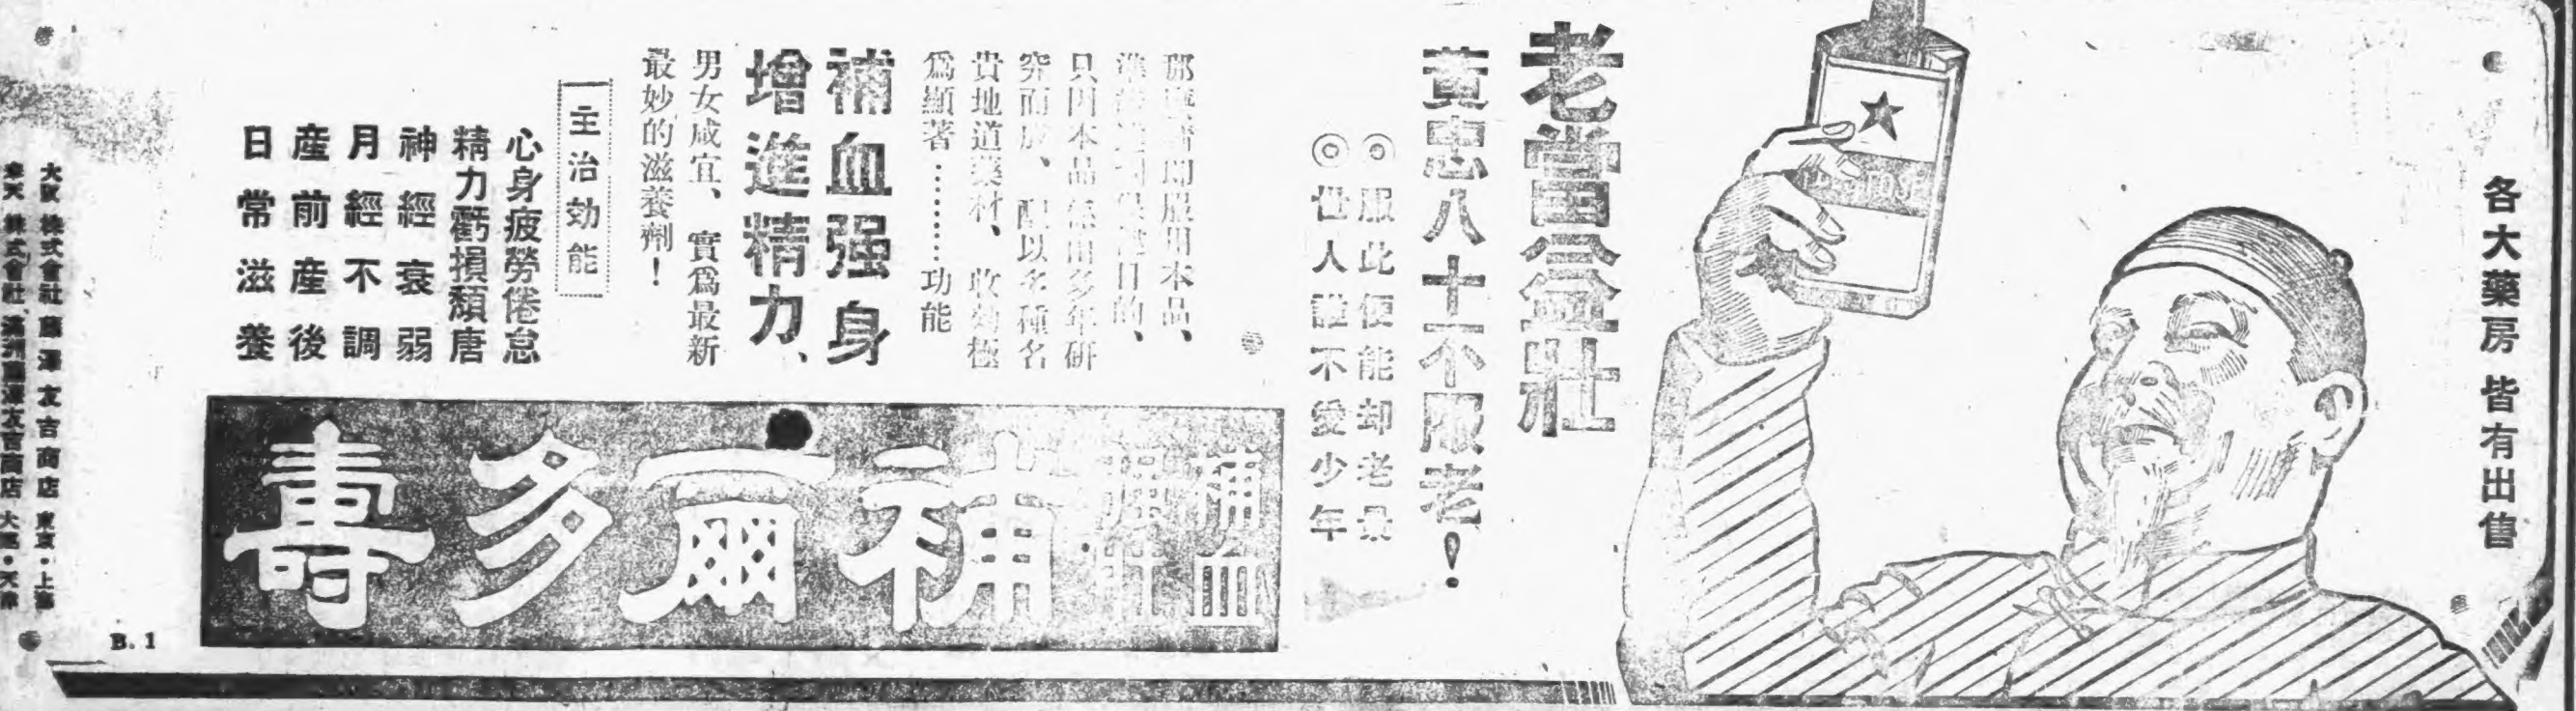 各大藥房 皆有出售
老當益壯
黃忠八十不服老！
◎服此便能却老景
◎世人誰不愛少年
請即服用本品、
目的、
只因本品係由多年研
究而成、配以名種名
貴地道藥材、收効極
爲顯著………功能
補血强身
增進精力、
男女咸宜、實爲最新
最妙的滋養劑！
主治効能
心身疲勞倦怠
精力虧損頹唐
神經衰弱
月經不調
産前産後
日常滋養
補血
强壯
補爾多壽
大阪 株式會社 藤澤友吉商店 東京・上海
奉天 株式會社 滿洲藤澤友吉商店 大連・天津
B. 1